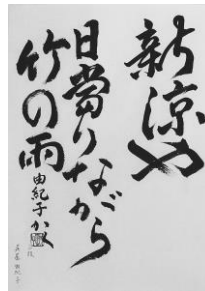 新涼や
日當りながら
竹の雨
由紀子かく